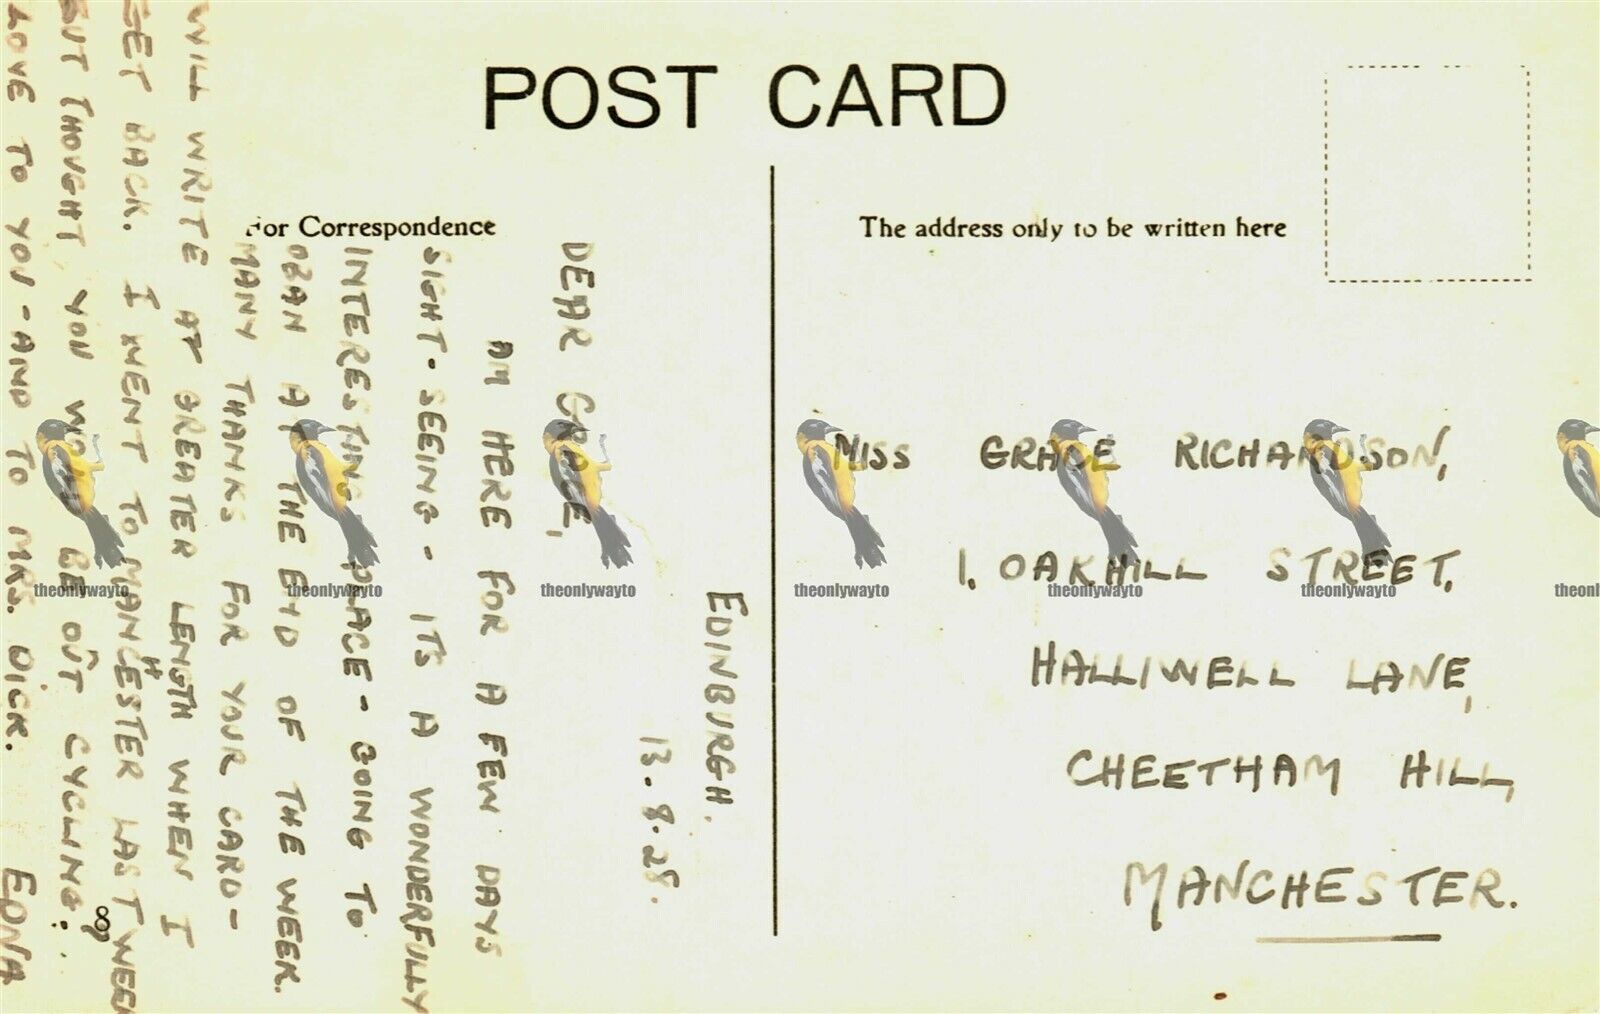 POST CARD
For Correspondence
The address only to be written here
EDINBURGH.
13.8.28.
DEAR GRACE,
AM HERE FOR A FEW DAYS
SIGHT-SEEING - ITS A WONDERFULLY
INTERESTING PLACE - GOING TO
OBAN AT THE END OF THE WEEK.
MANY THANKS FOR YOUR CARD-
WILL WRITE AT GREATER LENGTH WHEN I
GET BACK. I WENT TO MANCHESTER LAST WEEK
BUT THOUGHT YOU WOULD BE OUT CYCLING.
LOVE TO YOU - AND TO MRS. DICK. EDNA
MISS GRACE RICHARDSON,
1. OAKHILL STREET.
HALLIWELL LANE,
CHEETHAM HILL,
MANCHESTER.
theonlywayto theonlywayto theonlywayto theonlywayto theonlywayto theonlywayto theonl